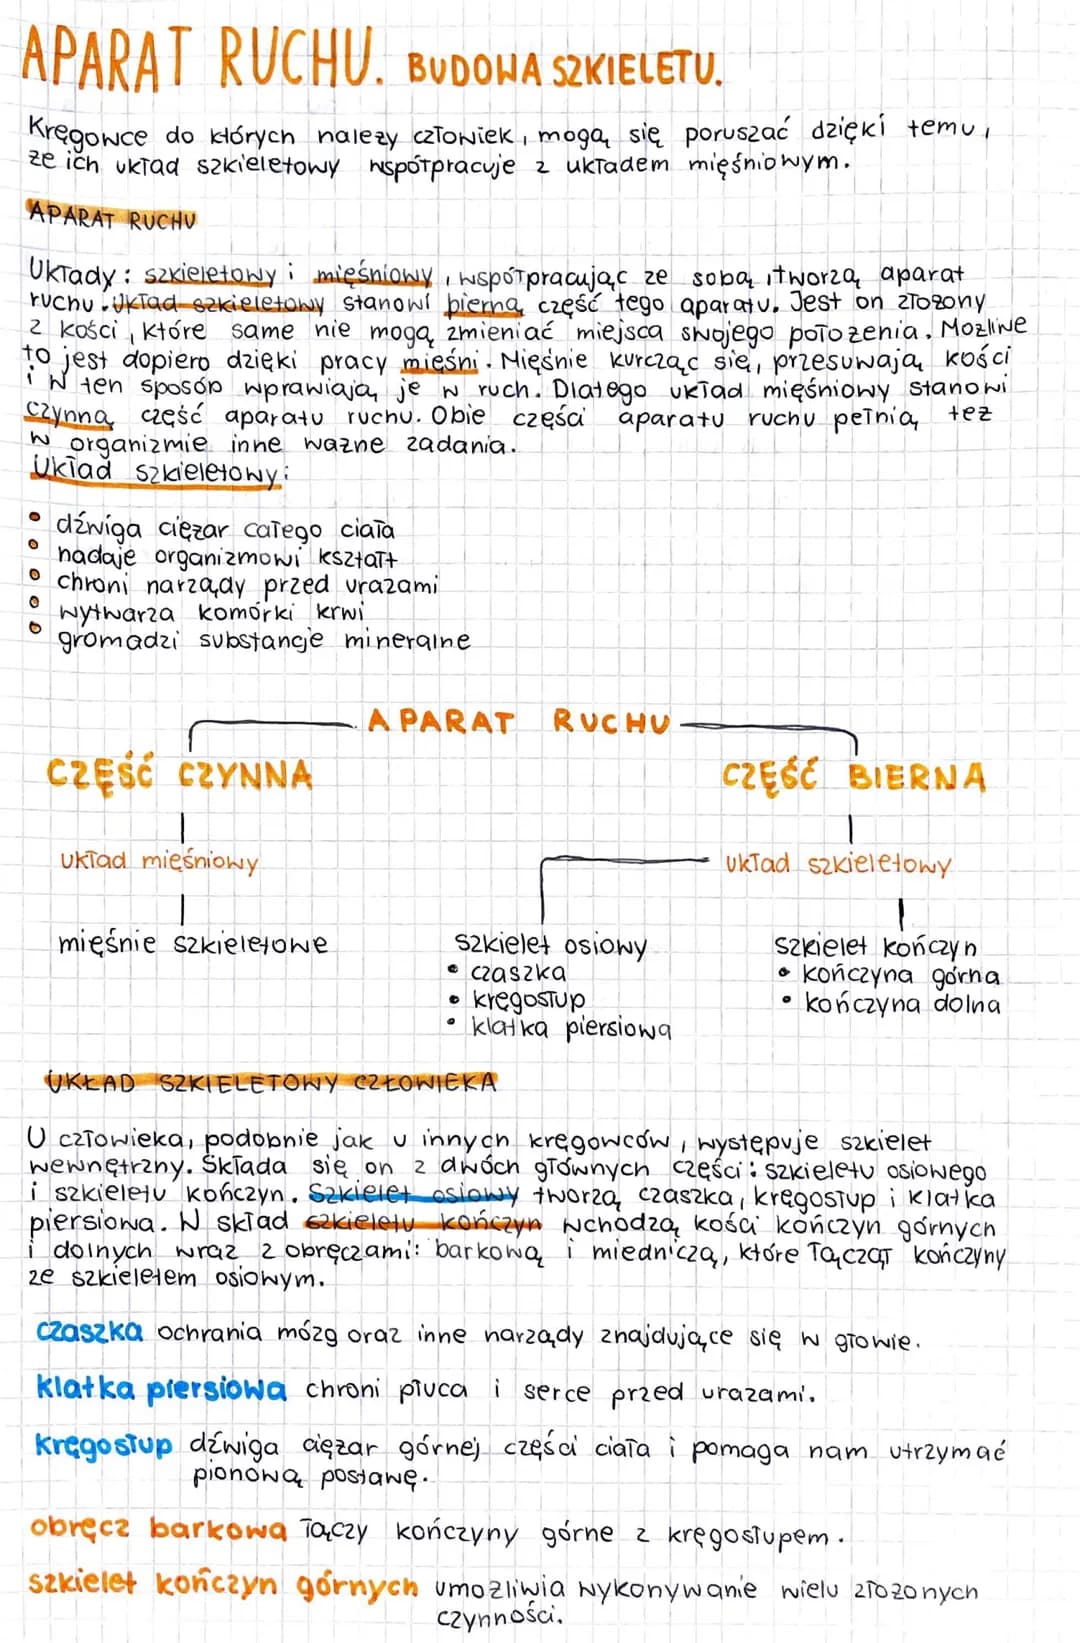 APARAT RUCHU. BUDOWA SZKIELETU.
Kręgowce do których należy człowiek, mogą się poruszać dzięki temu,
że ich układ szkieletowy współpracuje z układem mięśniowym.
APARAT RUCHU
Układy: szkieletowy i mięśniowy, współpracując ze sobą, tworzą aparat
ruchu. Układ szkieletowy stanowi bierną część tego aparatu. Jest on złożony
z kości, które same nie mogą zmieniać miejsca swojego położenia. Możliwe
to jest dopiero dzięki pracy mięśni. Mięśnie kurcząc się, przesuwają kości
i w ten sposób wprawiają je w ruch. Dlatego układ mięśniowy stanowi
czynną część aparatu ruchu. Obie części aparatu ruchu pełnią też
w organizmie inne ważne zadania.
Układ szkieletowy:
• dźwiga ciężar całego ciała
• nadaje organizmowi kształt
• chroni narządy przed urazami
• wytwarza komórki krwi
• gromadzi substancje mineralne
APARAT RUCHU
CZĘŚĆ CZYNNA
CZĘŚĆ BIERNA
układ mięśniowy
układ szkieletowy
mięśnie szkieletowe
szkielet osiowy
• czaszka
• kręgosłup
• klatka piersiowa
szkielet kończyn
• kończyna górna
• kończyna dolna
UKŁAD SZKIELETOWY CZŁOWIEKA
U człowieka, podobnie jak u innych kręgowców, występuje szkielet
wewnętrzny. Składa się on z dwóch głównych części: szkieletu osiowego
i szkieletu kończyn. Szkielet osiowy tworzą czaszka, kręgosłup i klatka
piersiowa. W skład szkieletu kończyn wchodzą kości kończyn górnych
i dolnych wraz z obręczami: barkową i miedniczą, które łączął kończyny
ze szkieletem osiowym.
czaszka ochrania mózg oraz inne narządy znajdujące się w głowie.
klatka piersiowa chroni płuca i serce przed urazami.
kręgosłup dźwiga ciężar górnej części ciała i pomaga nam utrzymać
pionową postawę.
obręcz barkowa łączy kończyny górne z kręgosłupem.
szkielet kończyn górnych umożliwia wykonywanie wielu złożonych
czynności.